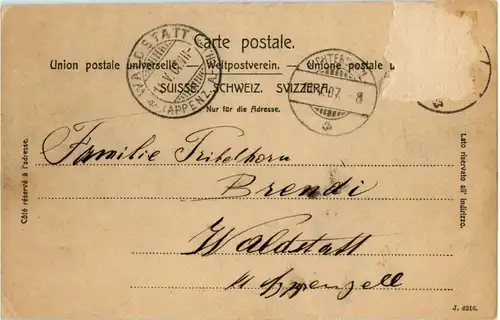 Carte postale.
Union postale universelle. — Weltpostverein. — Unione postale
SUISSE. SCHWEIZ. SVIZZERA.
Nur für die Adresse.
WALDSTATT
(APPENZ. A.-RH.)
07
8
Côté réservé à l'adresse.
Lato riservato all' indirizzo.
Familie Tribelhorn
Brendi
Waldstatt
Appenzell
J. 6216.